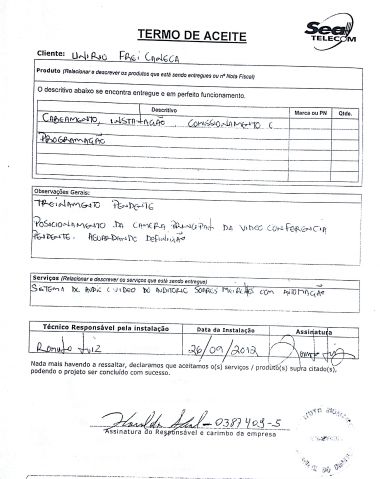 TERMO DE ACEITE
Seal
TELECOM
Cliente: UNIRIO FREI CANECA
Produto (Relacionar e descrever os produtos que está sendo entregues ou nº Nota Fiscal)
O descritivo abaixo se encontra entregue e em perfeito funcionamento.
Descritivo Marca ou PN Qtde.
CABEAMENTO, INSTALAÇÃO, COMISSIONAMENTO E
PROGRAMAÇÃO
Observações Gerais:
TREINAMENTO PENDENTE
POSICIONAMENTO DA CAMERA PRINCIPAL DA VIDEO CONFERENCIA
PENDENTE. AGUARDANDO DEFINIÇÃO
Serviços (Relacionar e descrever os serviços que está sendo entregue)
SISTEMA DE AUDIO E VIDEO DO AUDITORIO SOARES MEIRELLES COM AUTOMAÇÃO
Técnico Responsável pela instalação Data da Instalação Assinatura
Luiz 26/09/2012
Nada mais havendo a ressaltar, declaramos que aceitamos o(s) serviços / produto(s) supra citado(s),
podendo o projeto ser concluído com sucesso.
0387409-5
Assinatura do Responsável e carimbo da empresa